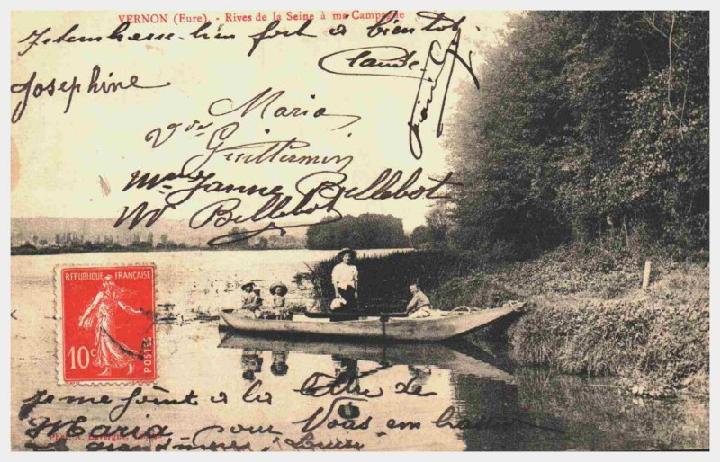 VERNON (Eure). - Rives de la Seine à ma Campagne
Je t'embrasse bien fort à bientôt
Claude
Joséphine
Vve Maria
Guillemin
Mme Janne Billebot
Mr Billebot
REPUBLIQUE FRANÇAISE
10c POSTES
Je me joint à la lettre de
Maria pour Vous embrasser
grand'mère Louise